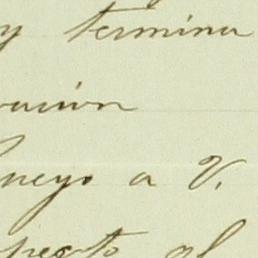 y termina
ración
luego a V.
pecto al